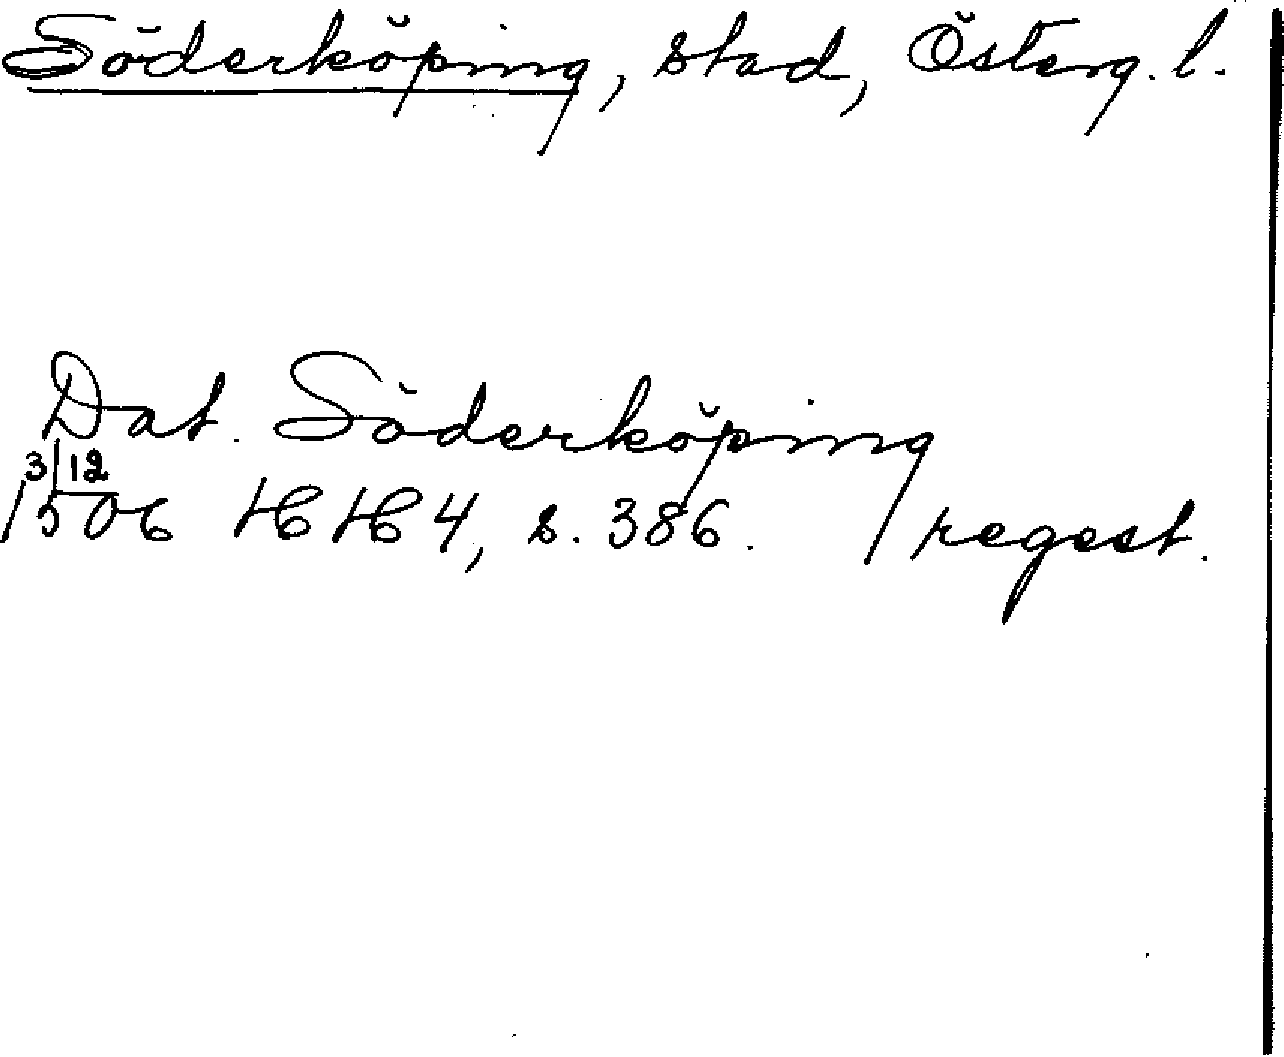 Söderköping, stad, Österg. l.
Dat. Söderköping
3/12
1506 HH 4, s. 386. regest.